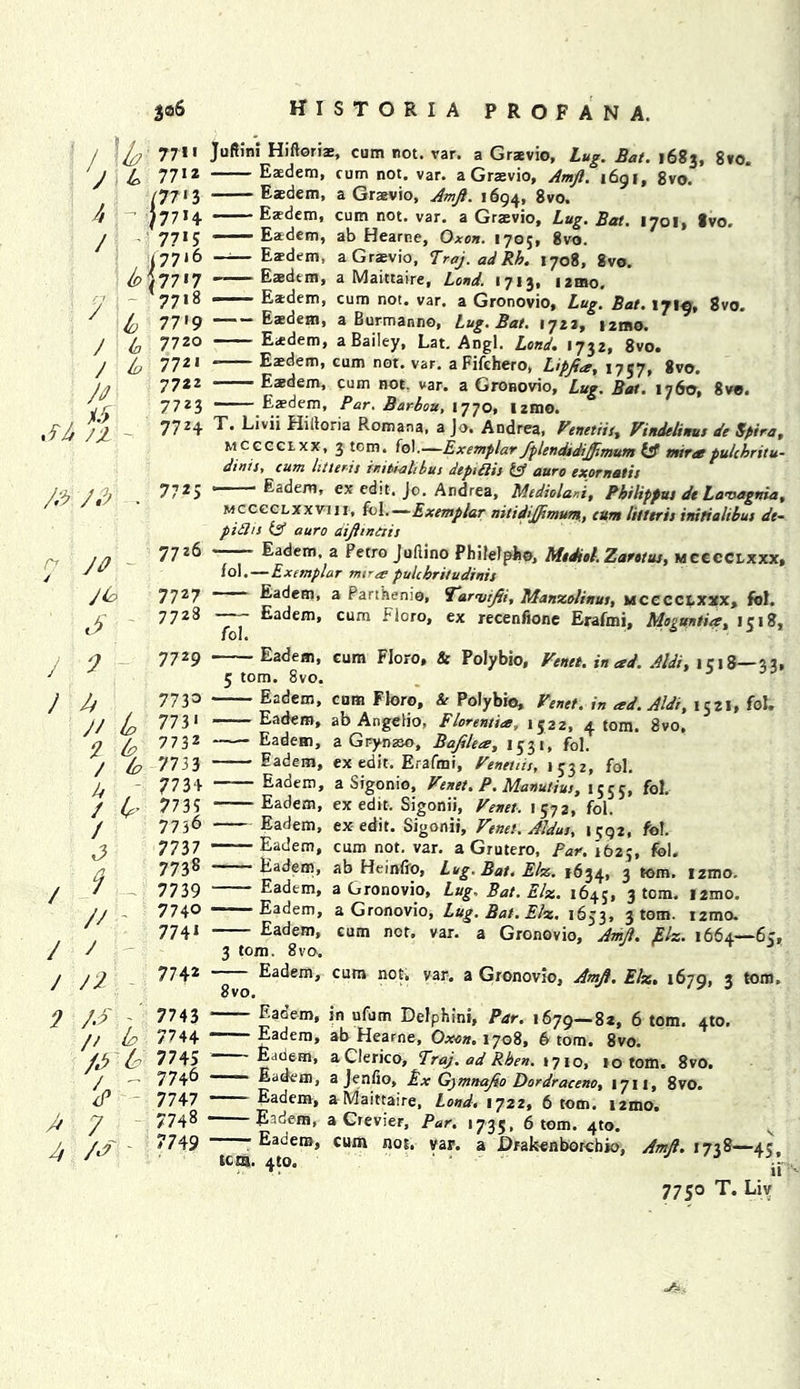 306 HISTORIA PROFANA.
7711 Juſtini Hiſtoriæ, cum not. var. a Grævio, Lug. Bat. 1683, 8vo.
7712 —— Eædem, cum not. var. a Grævio, Amſt. 1691, 8vo.
7713 —— Eædem, a Grævio, Amſt. 1694, 8vo.
7714 —— Eædem, cum not. var. a Grævio, Lug. Bat. 1701, 8vo.
7715 —— Eædem, ab Hearne, Oxon. 1705, 8vo.
7716 —— Eædem, a Grævio, Traj. ad Rh. 1708, 8vo.
7717 —— Eædem, a Maittaire, Lond. 1713, 12mo.
7718 —— Eædem, cum not. var. a Gronovio, Lug. Bat. 1719, 8vo.
7719 —— Eædem, a Burmanno, Lug. Bat. 1722, 12mo.
7720 —— Eædem, a Bailey, Lat. Angl. Lond. 1732, 8vo.
7721 —— Eædem, cum not. var. a Fiſchero, Lipſiæ, 1757, 8vo.
7722 —— Eædem, cum not. var. a Gronovio, Lug. Bat. 1760, 8vo.
7723 —— Eædem, Par. Barbou, 1770, 12mo.
7724 T. Livii Hiſtoria Romana, a Jo. Andrea, Venetiis, Vindelinus de Spira,
MCCCCLXX, 3 tom. fol.—Exemplar ſplendidiſſimum & miræ pulchritu-
dinis, cum litteris initialibus depictis & auro exornatis
7725 —— Eadem, ex edit. Jo. Andrea, Mediolani, Philippus de Lavagnia,
MCCCCLXXVIII, fol.—Exemplar nitidiſſimum, cum litteris initialibus de-
pictis & auro diſtinctis
7726 —— Eadem, a Petro Juſtino Philelpho, Mediol. Zarotus, MCCCCLXXX,
fol.—Exemplar miræ pulchritudinis
7727 —— Eadem, a Parthenio, Tarviſii, Manzolinus, MCCCCLXXX, fol.
7728 —— Eadem, cum Floro, ex recenſione Eraſmi, Moguntiæ, 1518,
fol.
7729 —— Eadem, cum Floro, & Polybio, Venet. in æd. Aldi, 1518—33,
5 tom. 8vo.
7730 —— Eadem, cum Floro, & Polybio, Venet. in æd. Aldi, 1521, fol.
7731 —— Eadem, ab Angelio, Florentiæ, 1522, 4 tom. 8vo.
7732 —— Eadem, a Grynæo, Baſileæ, 1531, fol.
7733 —— Eadem, ex edit. Eraſmi, Venetiis, 1532, fol.
7734 —— Eadem, a Sigonio, Venet. P. Manutius, 1555, fol.
7735 —— Eadem, ex edit. Sigonii, Venet. 1572, fol.
7736 —— Eadem, ex edit. Sigonii, Venet. Aldus, 1592, fol.
7737 —— Eadem, cum not. var. a Grutero, Par. 1625, fol.
7738 —— Eadem, ab Heinſio, Lug. Bat. Elz. 1634, 3 tom. 12mo.
7739 —— Eadem, a Gronovio, Lug. Bat. Elz. 1645, 3 tom. 12mo.
7740 —— Eadem, a Gronovio, Lug. Bat. Elz. 1653, 3 tom. 12mo.
7741 —— Eadem, cum not. var. a Gronovio, Amſt. Elz. 1664—65,
3 tom. 8vo.
7742 —— Eadem, cum not. var. a Gronovio, Amſt. Elz. 1679, 3 tom.
8vo.
7743 —— Eadem, in uſum Delphini, Par. 1679—82, 6 tom. 4to.
7744 —— Eadem, ab Hearne, Oxon. 1708, 6 tom. 8vo.
7745 —— Eadem, a Clerico, Traj. ad Rhen. 1710, 10 tom. 8vo.
7746 —— Eadem, a Jenſio, Ex Gymnaſio Dordraceno, 1711, 8vo.
7747 —— Eadem, a Maittaire, Lond. 1722, 6 tom. 12mo.
7748 —— Eadem, a Crevier, Par. 1735, 6 tom. 4to.
7749 —— Eadem, cum not. var. a Drakenborchio, Amſt. 1738—45,
tom. 4to.
7750 T. Liv